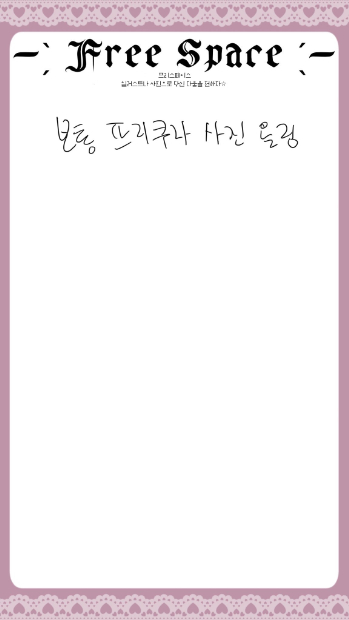 Free Space
프리스페이스
일러스트나 사진으로 당신 다움을 전하다☆
보통 프리쿠라 사진 올림